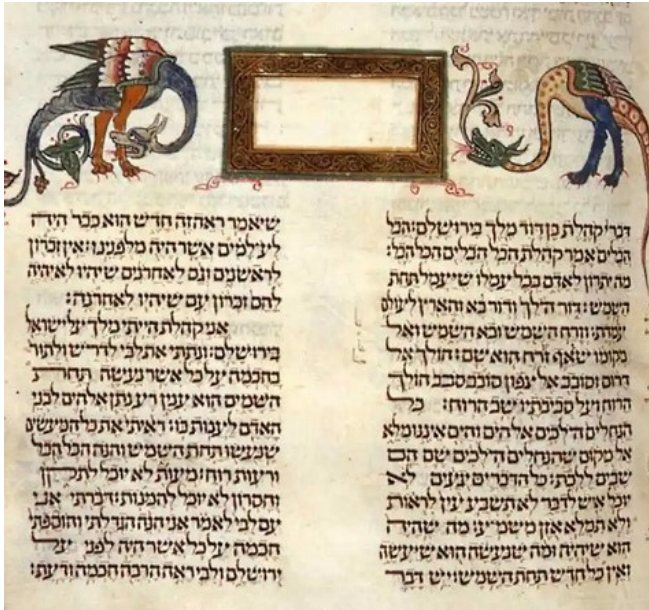 דברי קהלת בן דוד מלך בירושלם׃ הבל
הבלים אמר קהלת הבל הבלים הכל הבל׃
מה יתרון לאדם בכל עמלו שיעמל תחת
השמש׃ דור הלך ודור בא והארץ לעולם
עמדת׃ וזרח השמש ובא השמש ואל
מקומו שואף זרח הוא שם׃ הולך אל
דרום וסובב אל צפון סובב סבב הולך
הרוח ועל סביבתיו שב הרוח׃ כל
הנחלים הלכים אל הים והים איננו מלא
אל מקום שהנחלים הלכים שם הם
שבים ללכת׃ כל הדברים יגעים לא
יוכל איש לדבר לא תשבע עין לראות
ולא תמלא אזן משמע׃ מה שהיה
הוא שיהיה ומה שנעשה הוא שיעשה
ואין כל חדש תחת השמש׃ יש דבר
שיאמר ראה זה חדש הוא כבר היה
לעלמים אשר היה מלפננו׃ אין זכרון
לראשנים וגם לאחרנים שיהיו לא יהיה
להם זכרון עם שיהיו לאחרנה׃
אני קהלת הייתי מלך על ישראל
בירושלם׃ ונתתי את לבי לדרש ולתור
בחכמה על כל אשר נעשה תחת
השמים הוא ענין רע נתן אלהים לבני
האדם לענות בו׃ ראיתי את כל המעשים
שנעשו תחת השמש והנה הכל הבל
ורעות רוח׃ מעות לא יוכל לתקן
וחסרון לא יוכל להמנות׃ דברתי אני
עם לבי לאמר אני הנה הגדלתי והוספתי
חכמה על כל אשר היה לפני על
ירושלם ולבי ראה הרבה חכמה ודעת׃